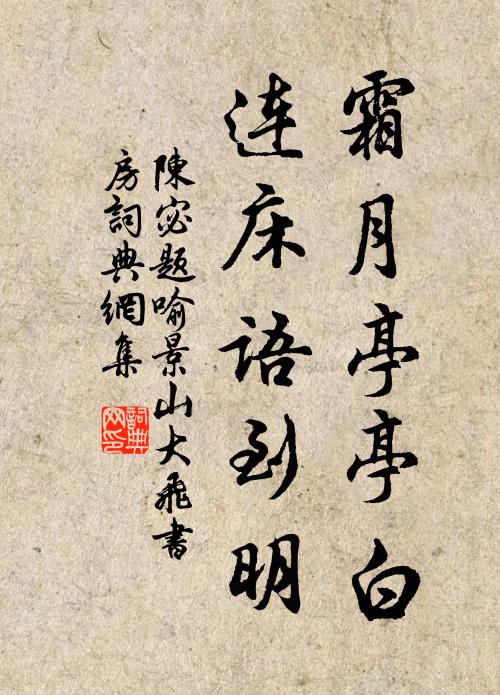 霜月亭亭白
连床语到明
陳宓題喻景山大飛書
房詞典網集
詞典
网印